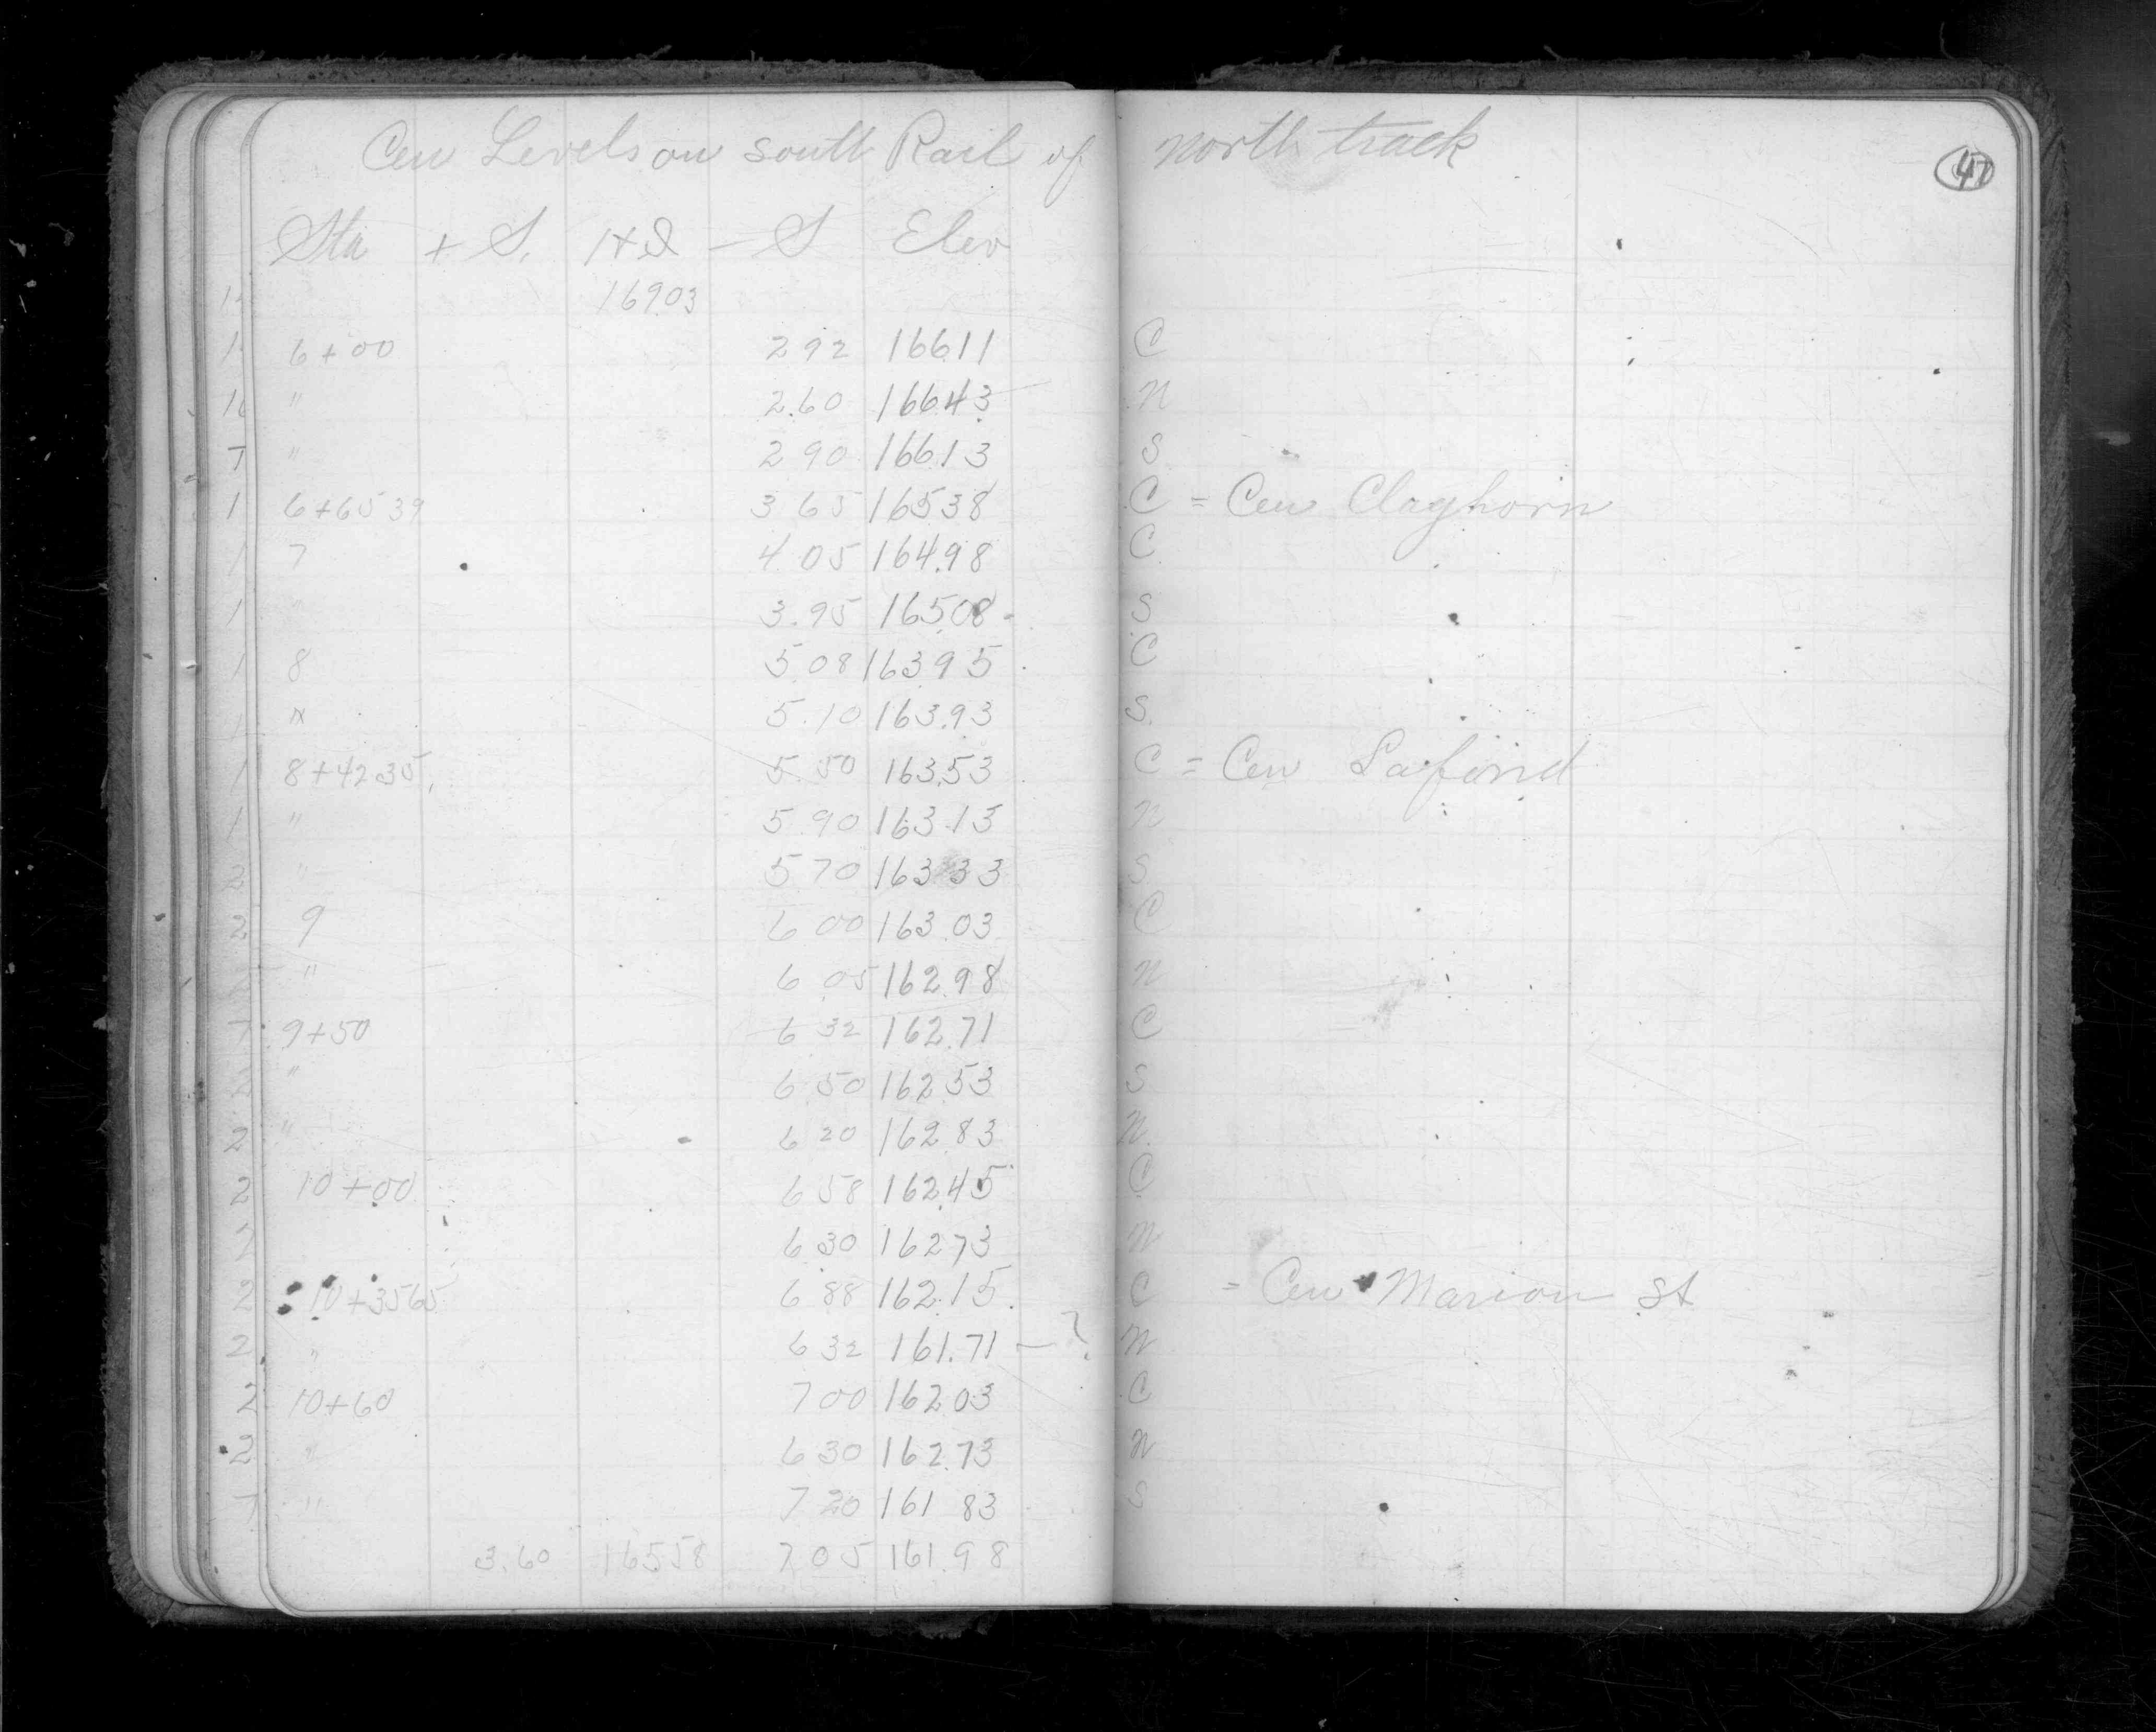 Cen Levels on south Rail of north track
47
Sta + S. H I - S Elev
169 03
6+00 2 92 166 11 C
" 2.60 166.43 N
" 2 90 166 13 S
6+65 39 3 65 165 38 C = Cen Clayhorn
7 4 05 164.98 C
" 3.95 165 08 S
8 5 08 163 95 C
" 5.10 163.93 S.
8+42 35 5.50 163.53 C = Cen Lafond
" 5 90 163 13 N
" 5 70 163 33 S
9 6 00 163 03 C
" 6 05 162 98 N
9+50 6 32 162.71 C
" 6 50 162 53 S
" 6 20 162 83 N.
10+00 6 58 162 45 C
6 30 162 73 N
10+35 65 6 88 162 15 C = Cen Marion St
" 6 32 161.71 - ? N
10+60 7 00 162 03 C
" 6 30 162.73 N
" 7 20 161 83 S
3.60 165 58 7 05 161.98